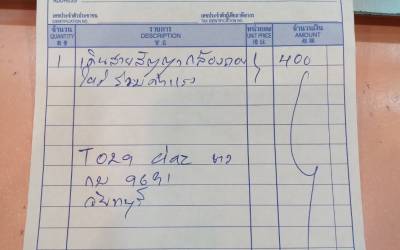 ADDRESS
เลขประจำตัวประชาชน เลขประจำตัวผู้เสียภาษีอากร
IDENTIFICATION NO. TAX IDENTIFICATION NO.
จำนวน รายการ หน่วยละ จำนวนเงิน
QUANTITY DESCRIPTION UNIT PRICE AMOUNT
1 เดินสายสัญญากล้องถอย 400
ใหม่ รวมค่าแรง
T029
กบ 9631
จันทบุรี